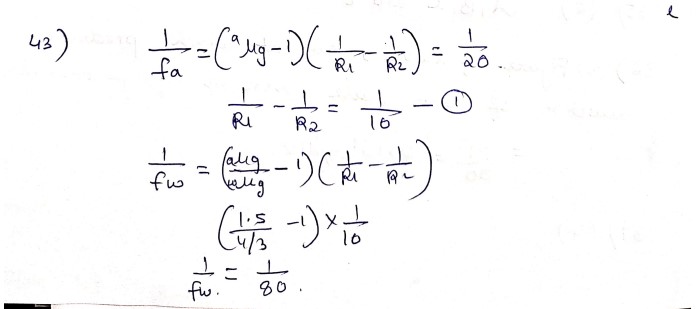 43) 1/fa = (ᵃμg - 1)(1/R1 - 1/R2) = 1/20.
1/R1 - 1/R2 = 1/10 — ①
1/fw = (aμg/wμg - 1)(1/R1 - 1/R2)
(1.5/4/3 - 1) × 1/10
1/fw. = 1/80.